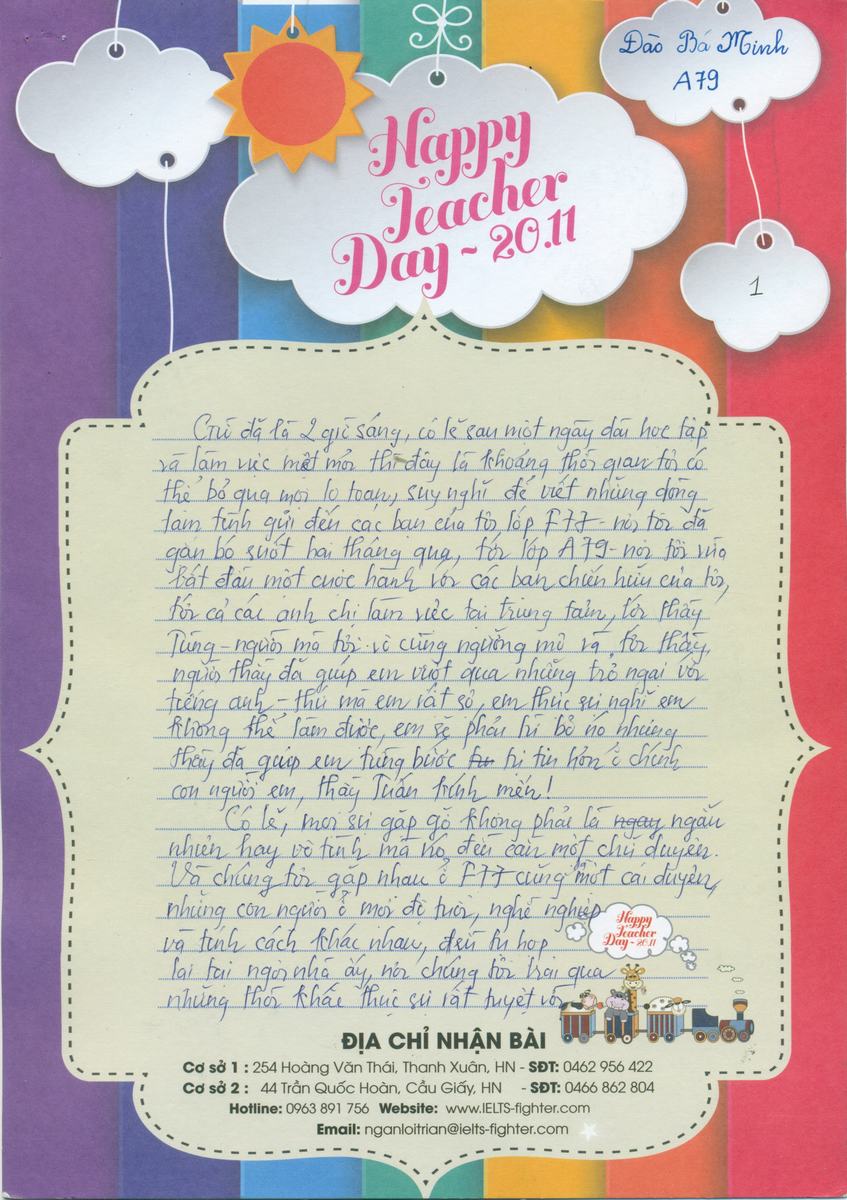 Đào Bá Minh
A79
Happy
Teacher
Day ~ 20.11
1
Giờ đã là 2 giờ sáng, có lẽ sau một ngày dài học tập
và làm việc mệt mỏi thì đây là khoảng thời gian tôi có
thể bỏ qua mọi lo toan, suy nghĩ để viết những dòng
tâm tình gửi đến các bạn của tôi lớp F77 - nơi tôi đã
gắn bó suốt hai tháng qua, tới lớp A79 - nơi tôi vừa
bắt đầu một cuộc hành với các bạn chiến hữu của tôi,
tới cả các anh chị làm việc tại trung tâm, tới thầy
Tùng - người mà tôi vô cùng ngưỡng mộ và tới thầy,
người thầy đã giúp em vượt qua những trở ngại với
tiếng anh - thứ mà em rất sợ, em thực sự nghĩ em
không thể làm được, em sẽ phải từ bỏ nó nhưng
thầy đã giúp em từng bước tự tin hơn ở chính
con người em, thầy Tuấn kính mến!
Có lẽ, mọi sự gặp gỡ không phải là ngẫu
nhiên hay vô tình mà nó đều cần một chữ duyên.
Và chúng tôi gặp nhau ở F77 cũng là một cái duyên,
những con người ở mọi độ tuổi, nghề nghiệp
và tính cách khác nhau, đều tụ họp
lại tại ngôi nhà ấy, nơi chúng tôi trải qua
những thời khắc thực sự rất tuyệt vời
Happy
Teacher
Day ~ 20.11
ĐỊA CHỈ NHẬN BÀI
Cơ sở 1 : 254 Hoàng Văn Thái, Thanh Xuân, HN - SĐT: 0462 956 422
Cơ sở 2 : 44 Trần Quốc Hoàn, Cầu Giấy, HN - SĐT: 0466 862 804
Hotline: 0963 891 756 Website: www.IELTS-fighter.com
Email: nganloitrian@ielts-fighter.com